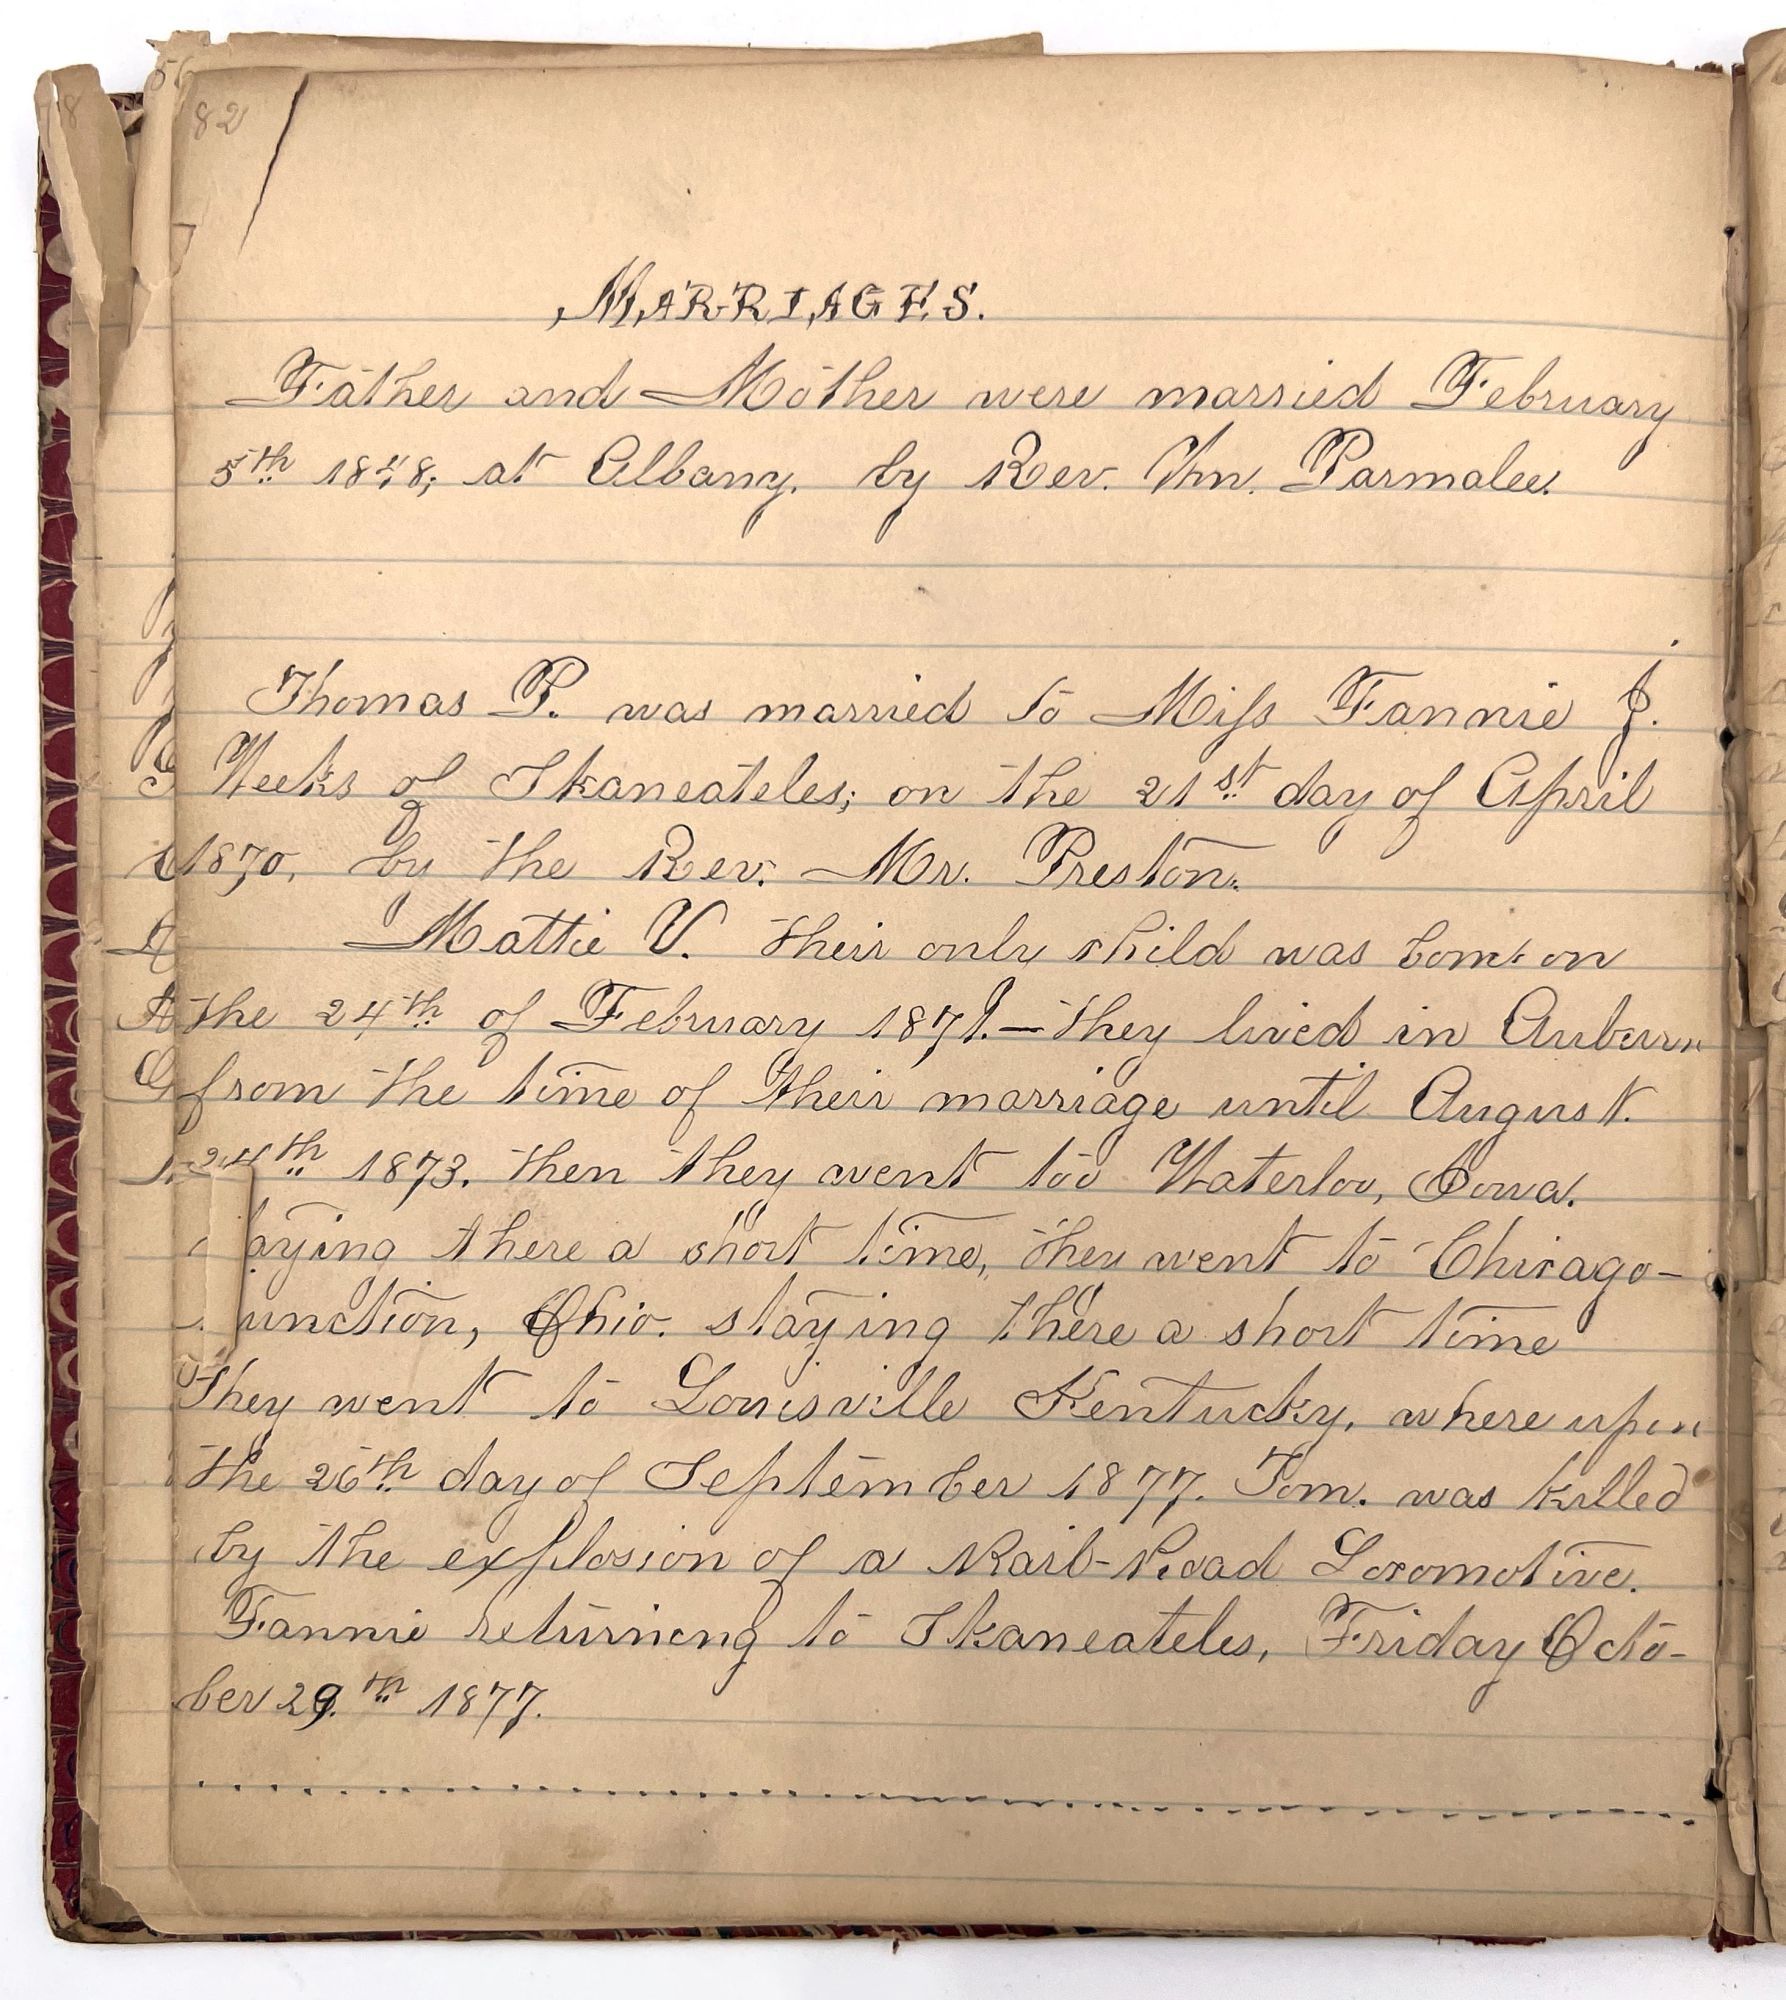 82
MARRIAGES.
Father and Mother were married February
5th 1848; at Albany, by Rev. Wm. Parmalee.
Thomas P. was married to Miss Fannie J.
Weeks of Skaneateles; on the 21st day of April
1870, by the Rev. Mr. Preston.
Mattie V. their only child was born on
the 24th of February 1871.— they lived in Auburn
from the time of their marriage until August
24th 1873. then they went too Waterloo, Iowa.
aying there a short time, they went to Chicago-
unction, Ohio. staying there a short time
they went to Louisville Kentucky, where upon
the 26th day of September 1877. Tom. was killed
by the explosion of a Rail-Road Locomotive.
Fannie returning to Skaneateles, Friday Octo-
ber 29.th 1877.